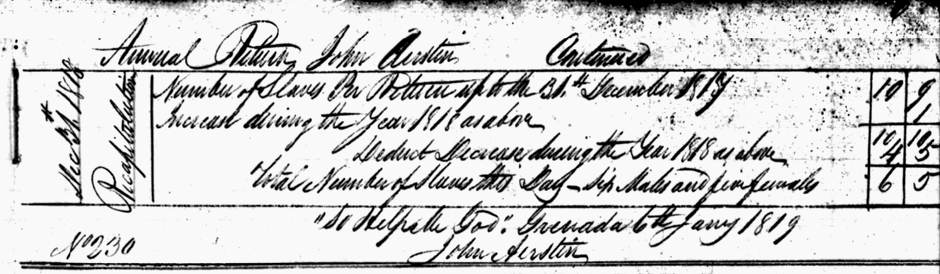 Annual Return John Aerstin Continued
Decr 31st 1818
Recapitulation
Number of Slaves Per Return up to the 31st December 1817 10 9
Increase during the Year 1818 as above 1
10 10
Deduct Decrease during the Year 1818 as above 4 5
Total Number of Slaves this Day - Six Males and five females 6 5
"So Help me God". Grenada 6th Jany 1819
No 230
John Aerstin